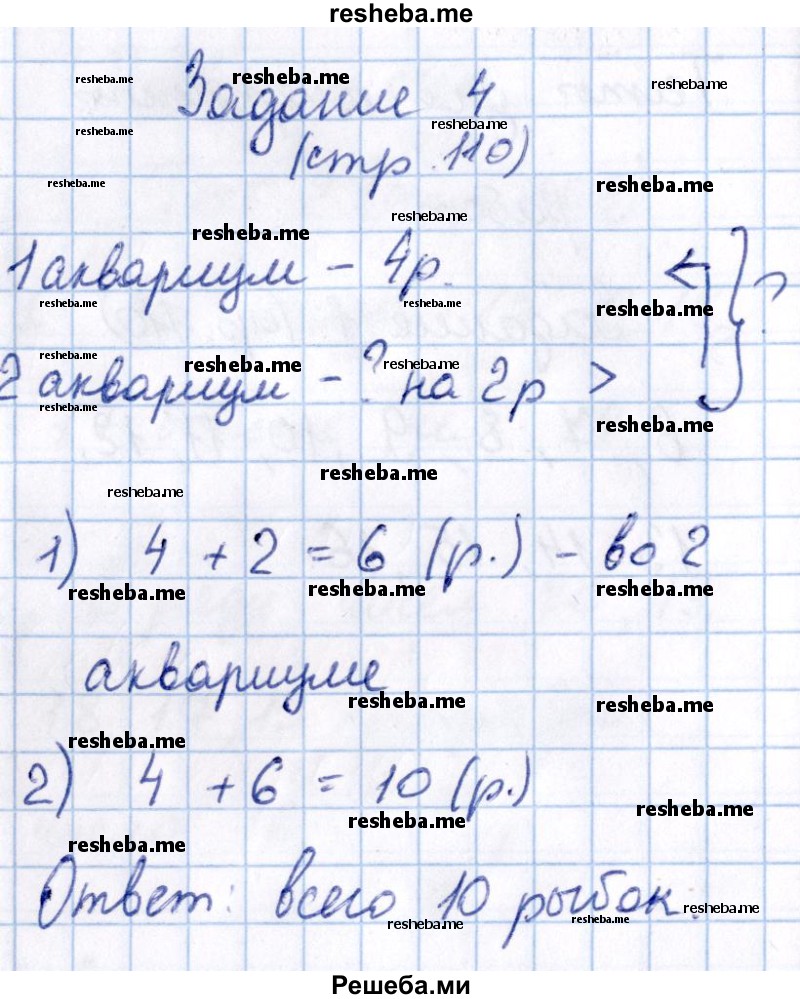 resheba.me
resheba.me resheba.me resheba.me
Задание 4
resheba.me resheba.me
(стр. 110)
resheba.me resheba.me
resheba.me
resheba.me
1 аквариум – 4р. ?
resheba.me resheba.me resheba.me
resheba.me resheba.me resheba.me
2 аквариум – ? на 2р >
resheba.me resheba.me
resheba.me
resheba.me
1) 4 + 2 = 6 (р.) – во 2
resheba.me resheba.me resheba.me
аквариуме
resheba.me resheba.me
resheba.me
2) 4 + 6 = 10 (р.)
resheba.me resheba.me
resheba.me
Ответ: всего 10 рыбок.
resheba.me resheba.me resheba.me
Решеба.ми